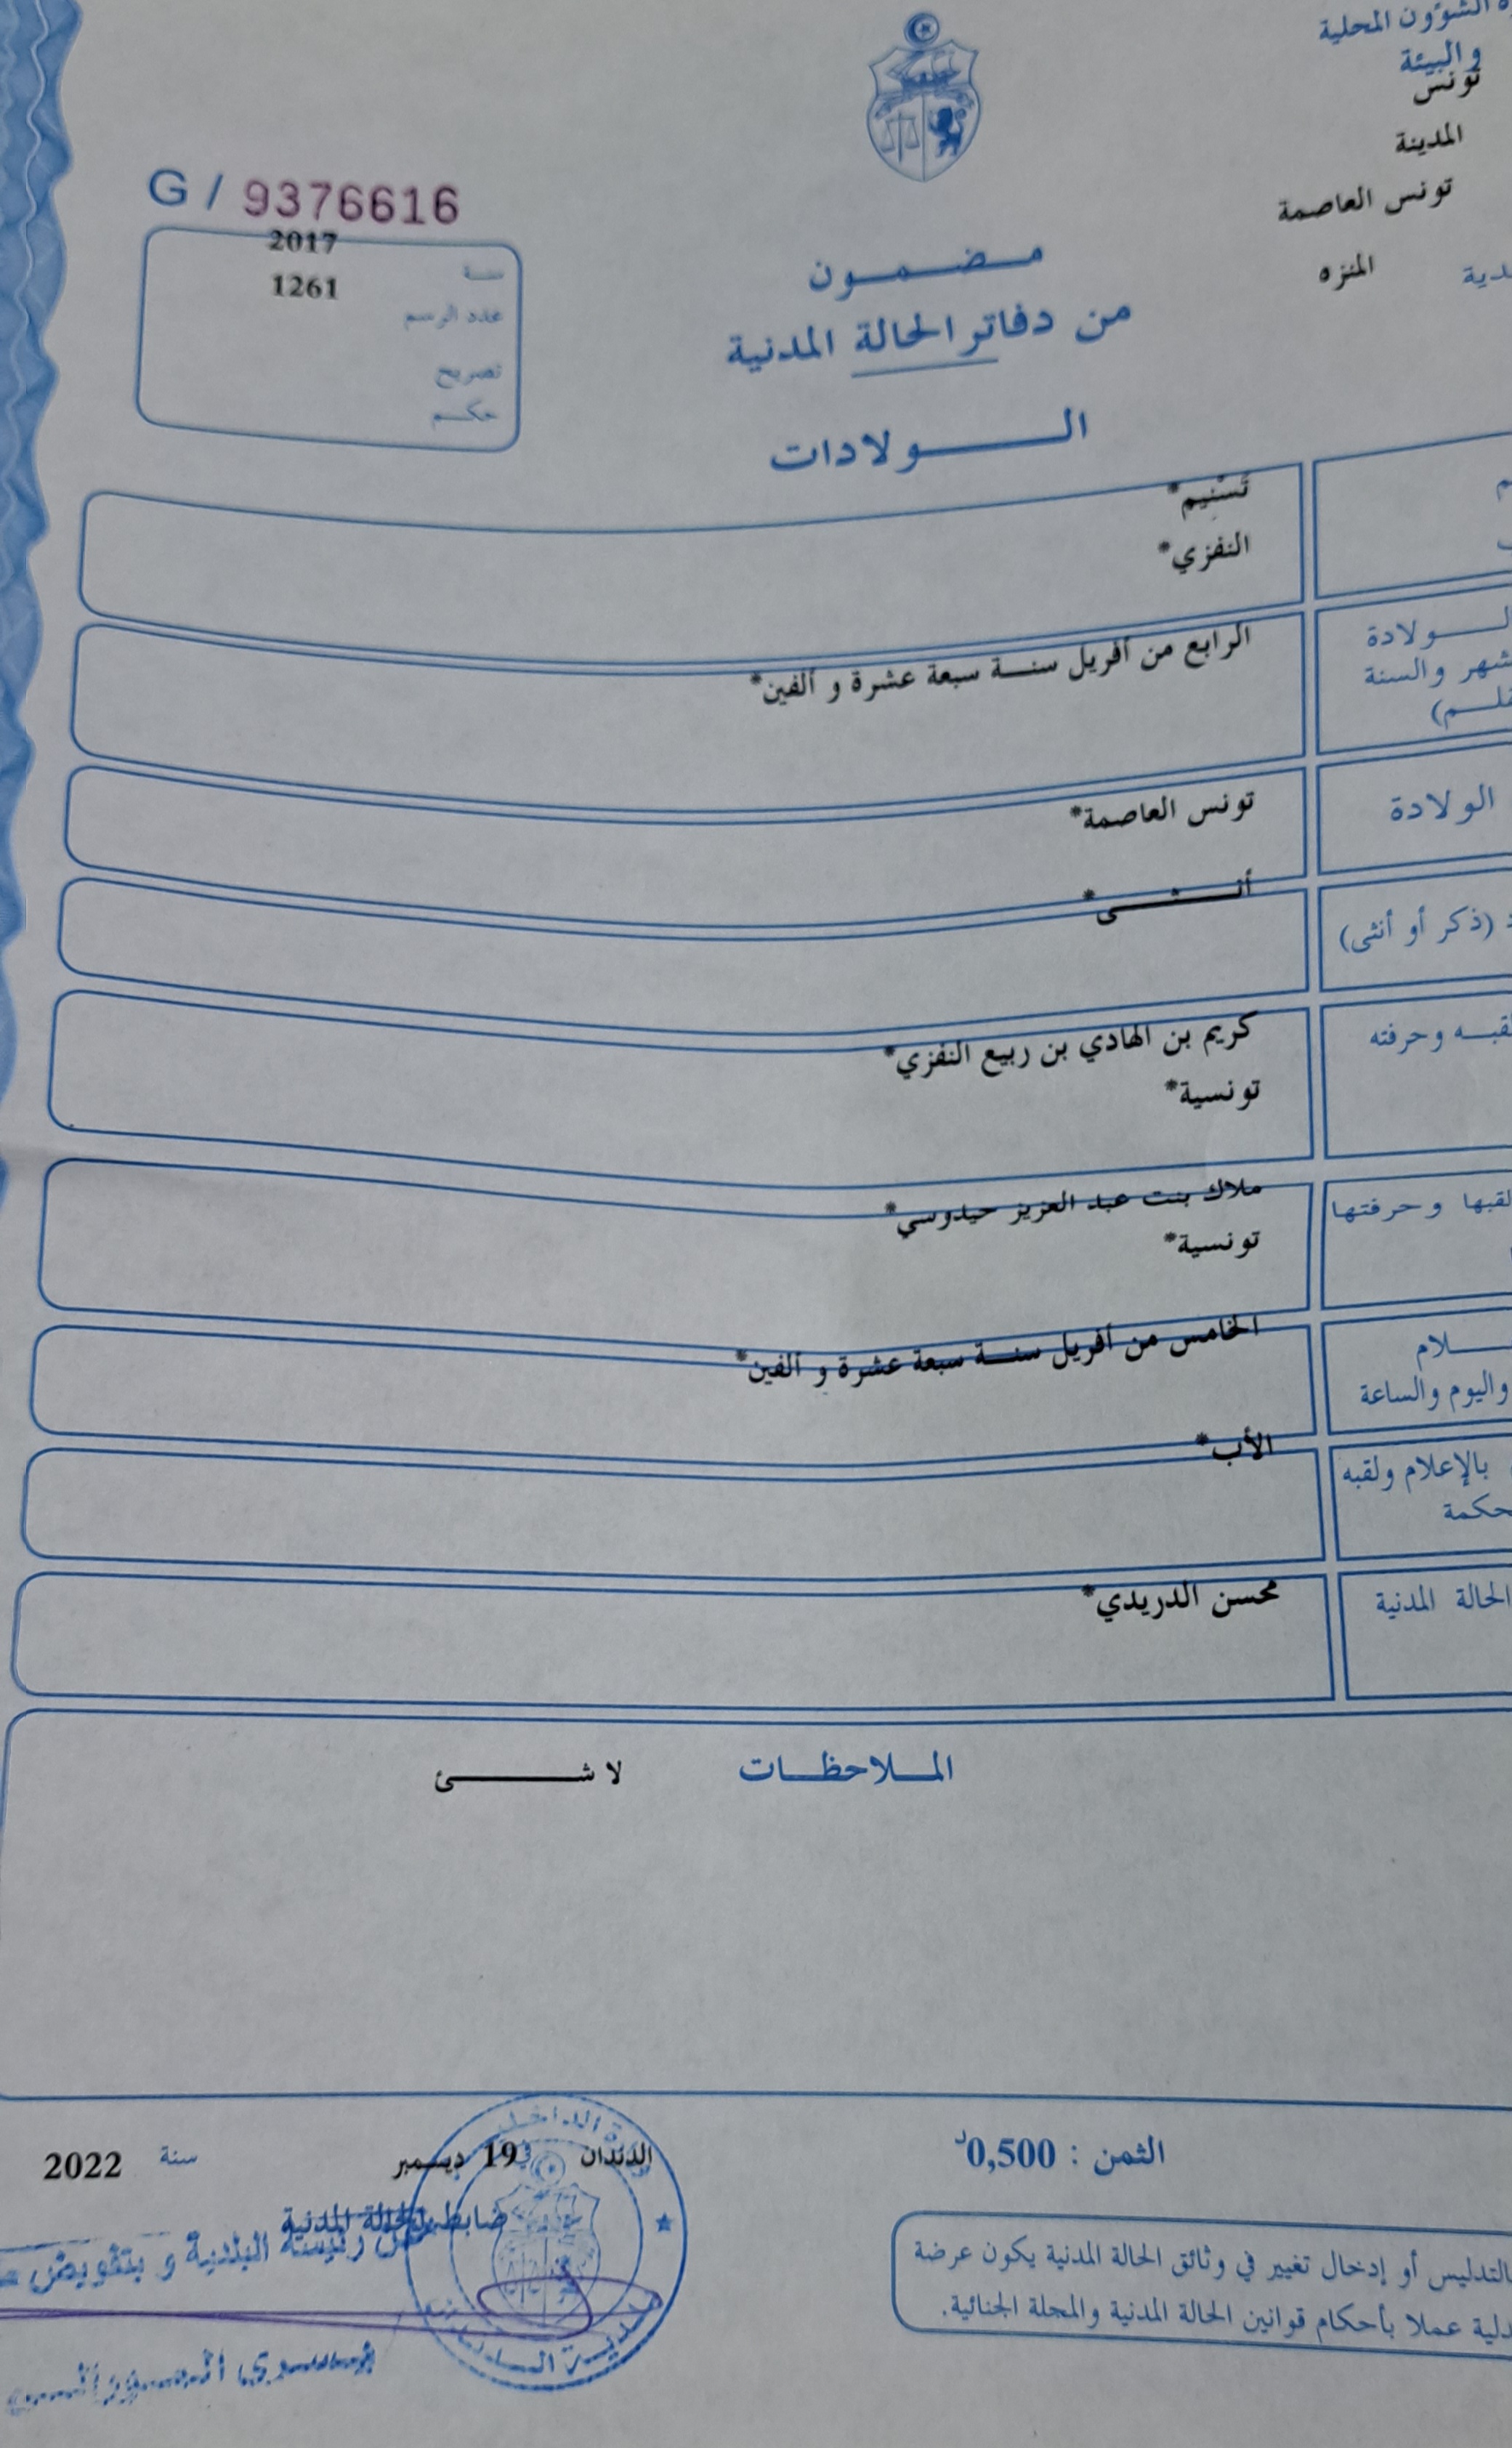 الشؤون المحلية
والبيئة
تونس
المدينة
تونس العاصمة
المنزه
G / 9376616
سنة 2017
عدد الرسم 1261
تصريح
حكم
مضمون
من دفاتر الحالة المدنية
الولادات
تسنيم*
النفزي*
الولادة
الرابع من أفريل سنة سبعة عشرة و ألفين*
والسنة
الولادة
تونس العاصمة*
(ذكر أو أنثى)
أنثى*
وحرفته
كريم بن الهادي بن ربيع النفزي*
تونسية*
لقبها وحرفتها
ملاك بنت عبد العزيز حيدوسي*
تونسية*
الخامس من أفريل سنة سبعة عشرة و ألفين*
واليوم والساعة
بالإعلام ولقبه
الأب*
الحالة المدنية
محسن الدريدي*
الملاحظات
لا شئ
الثمن : 0,500د
الدندان في 19 ديسمبر سنة 2022
ضابط الحالة المدنية
عن رئيسة البلدية و بتفويض
بالتدليس أو إدخال تغيير في وثائق الحالة المدنية يكون عرضة
عملا بأحكام قوانين الحالة المدنية والمجلة الجنائية.